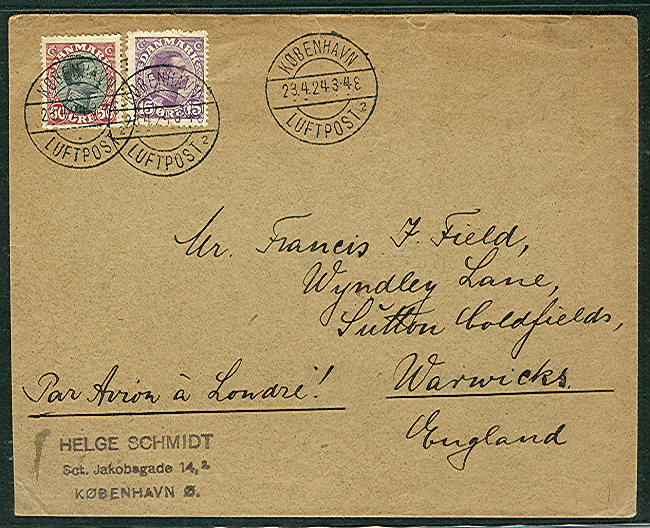 DANMARK
50 ØRE 50
DANMARK
15 ØRE 15
KØBENHAVN
LUFTPOST
KØBENHAVN
LUFTPOST 2
KØBENHAVN
23.4.24.3-4E
LUFTPOST 2
Mr. Francis J. Field,
Wyndley Lane,
Sutton Coldfields,
Warwicks.
England
Par Avion à Londré!
HELGE SCHMIDT
Sct. Jakobsgade 14, 2
KØBENHAVN Ø.